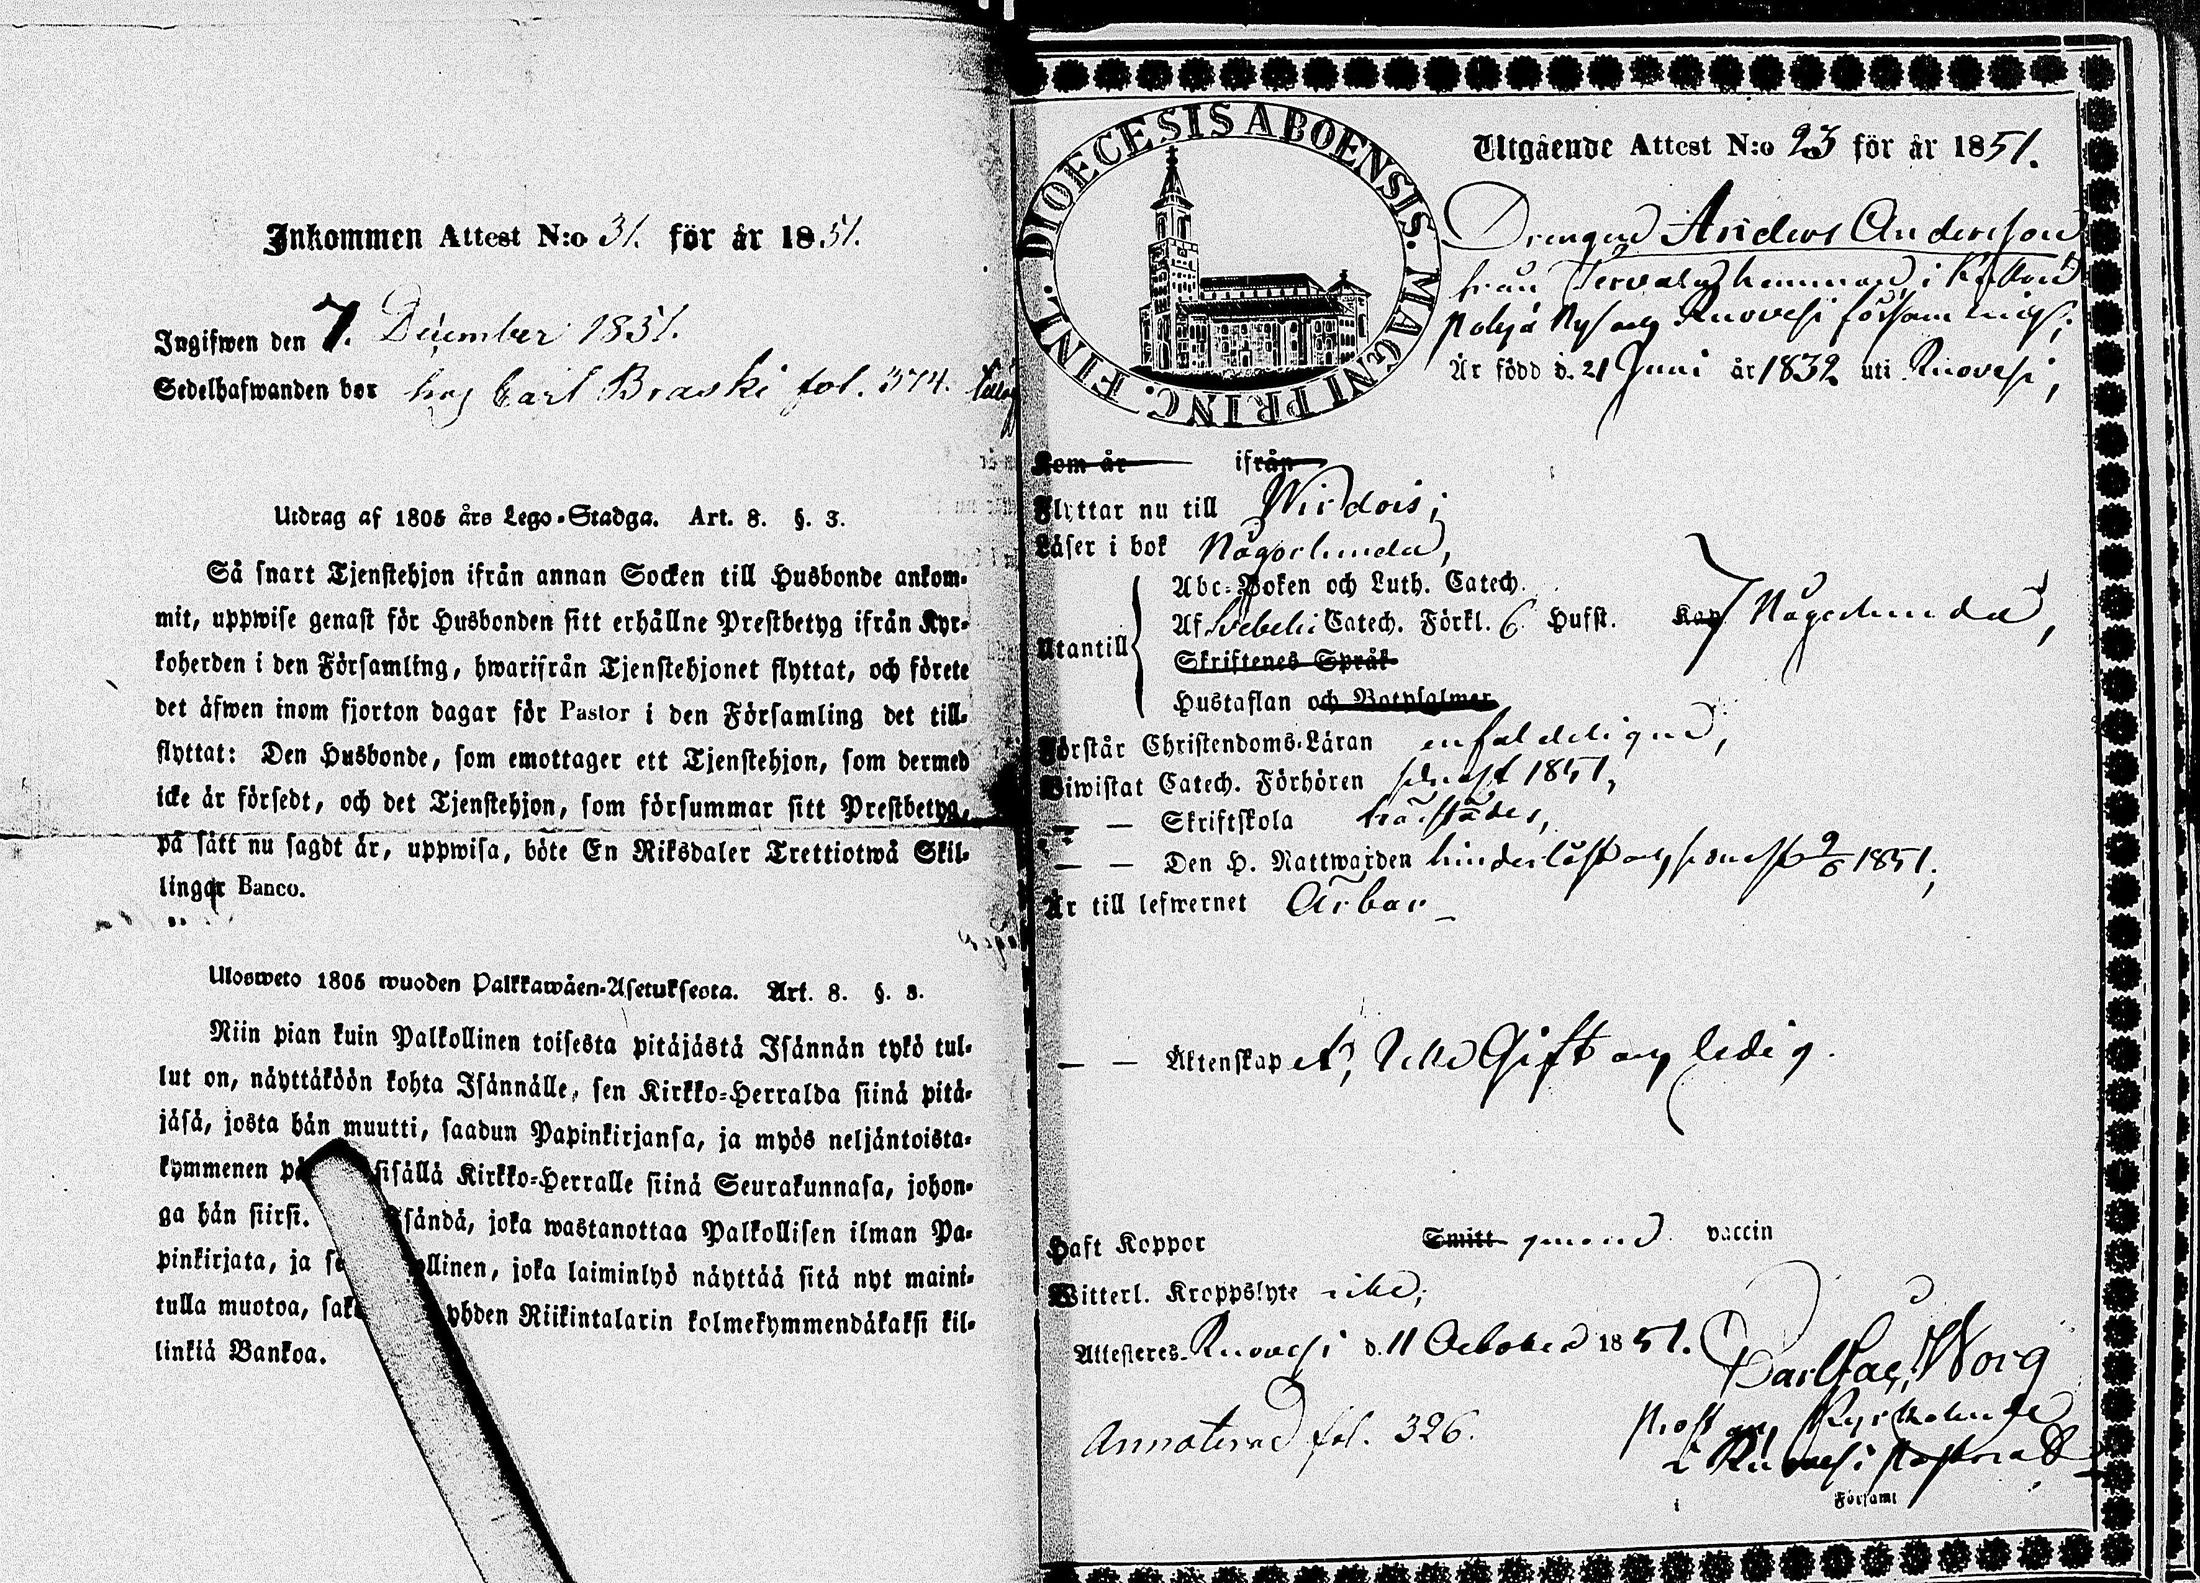 Inkommen Attest N:o 31. för år 1851.
Ingifwen den 7. December 1851.
Sedelhafwanden bor hos Carl Braski fol. 374.
Utdrag af 1805 års Lego-Stadga. Art. 8. §. 3.
Så snart Tjenstehjon ifrån annan Socken till Husbonde ankom-
mit, uppwise genast för Husbonden sitt erhållne Prestbetyg ifrån Kyr-
koherden i den Församling, hwarifrån Tjenstehjonet flyttat, och förete
det äfwen inom fjorton dagar för Pastor i den Församling det till-
flyttat: Den Husbonde, som emottager ett Tjenstehjon, som dermed
icke är försedt, och det Tjenstehjon, som försummar sitt Prestbetyg,
på sätt nu sagdt är, uppwisa, böte En Riksdaler Trettiotwå Skil-
lingar Banco.
Ulosweto 1805 wuoden Palkkawäen-Asetuksesta. Art. 8. §. 3.
Niin pian kuin Palkollinen toisesta pitäjästä Isännän tykö tul-
lut on, näyttäköön kohta Isännälle, sen Kirkko-Herralda siinä pitä-
jäsä, josta hän muutti, saadun Papinkirjansa, ja myös neljäntoista-
kymmenen sisällä Kirkko-Herralle siinä Seurakunnasa, johon-
ga hän siirsi. joka wastanottaa Palkollisen ilman Pa-
pinkirjata, ja joka laiminlyö näyttää sitä nyt maini-
tulla muotoa, yhden Riikintalarin kolmekymmendäkaksi kil-
linkiä Bankoa.
DIOECESIS ABOENSIS. MAGNI PRINC. FINL.
Utgående Attest N:o 23 för år 1851.
Drengen Anders Andersson
från hemman i
Nysocks Ruovesi församling;
Är född d. 21 Juni år 1832 uti Ruovesi;
Kom år ifrån
Flyttar nu till Wirdois;
Läser i bok Någorlunda,
Abc-Boken och Luth. Catech.
Utantill Af Svebelii Catech. Förkl. 6 Hufst. Kap Någorlunda,
Skriftenes Språk
Hustaflan och Botpsalmer
Förstår Christendoms-Läran enfaldeligen,
Biwistat Catech. Förhören senast 1851,
— — Skriftskola härstädes,
— — Den H. Nattwarden hinderlöst och senast 9/6 1851;
Är till lefwernet Ärbar
— — Äktenskap ej, utan Gift och ledig.
Haft Koppor Smitt genom vaccin
Witterl. Kroppslyte icke;
Attesteres. Ruovesi d. 11 October 1851.
Carl Warg
Prost och Kyrkoherde
Annoterad fol. 326.
i Ruovesi Pastorat
i Församl